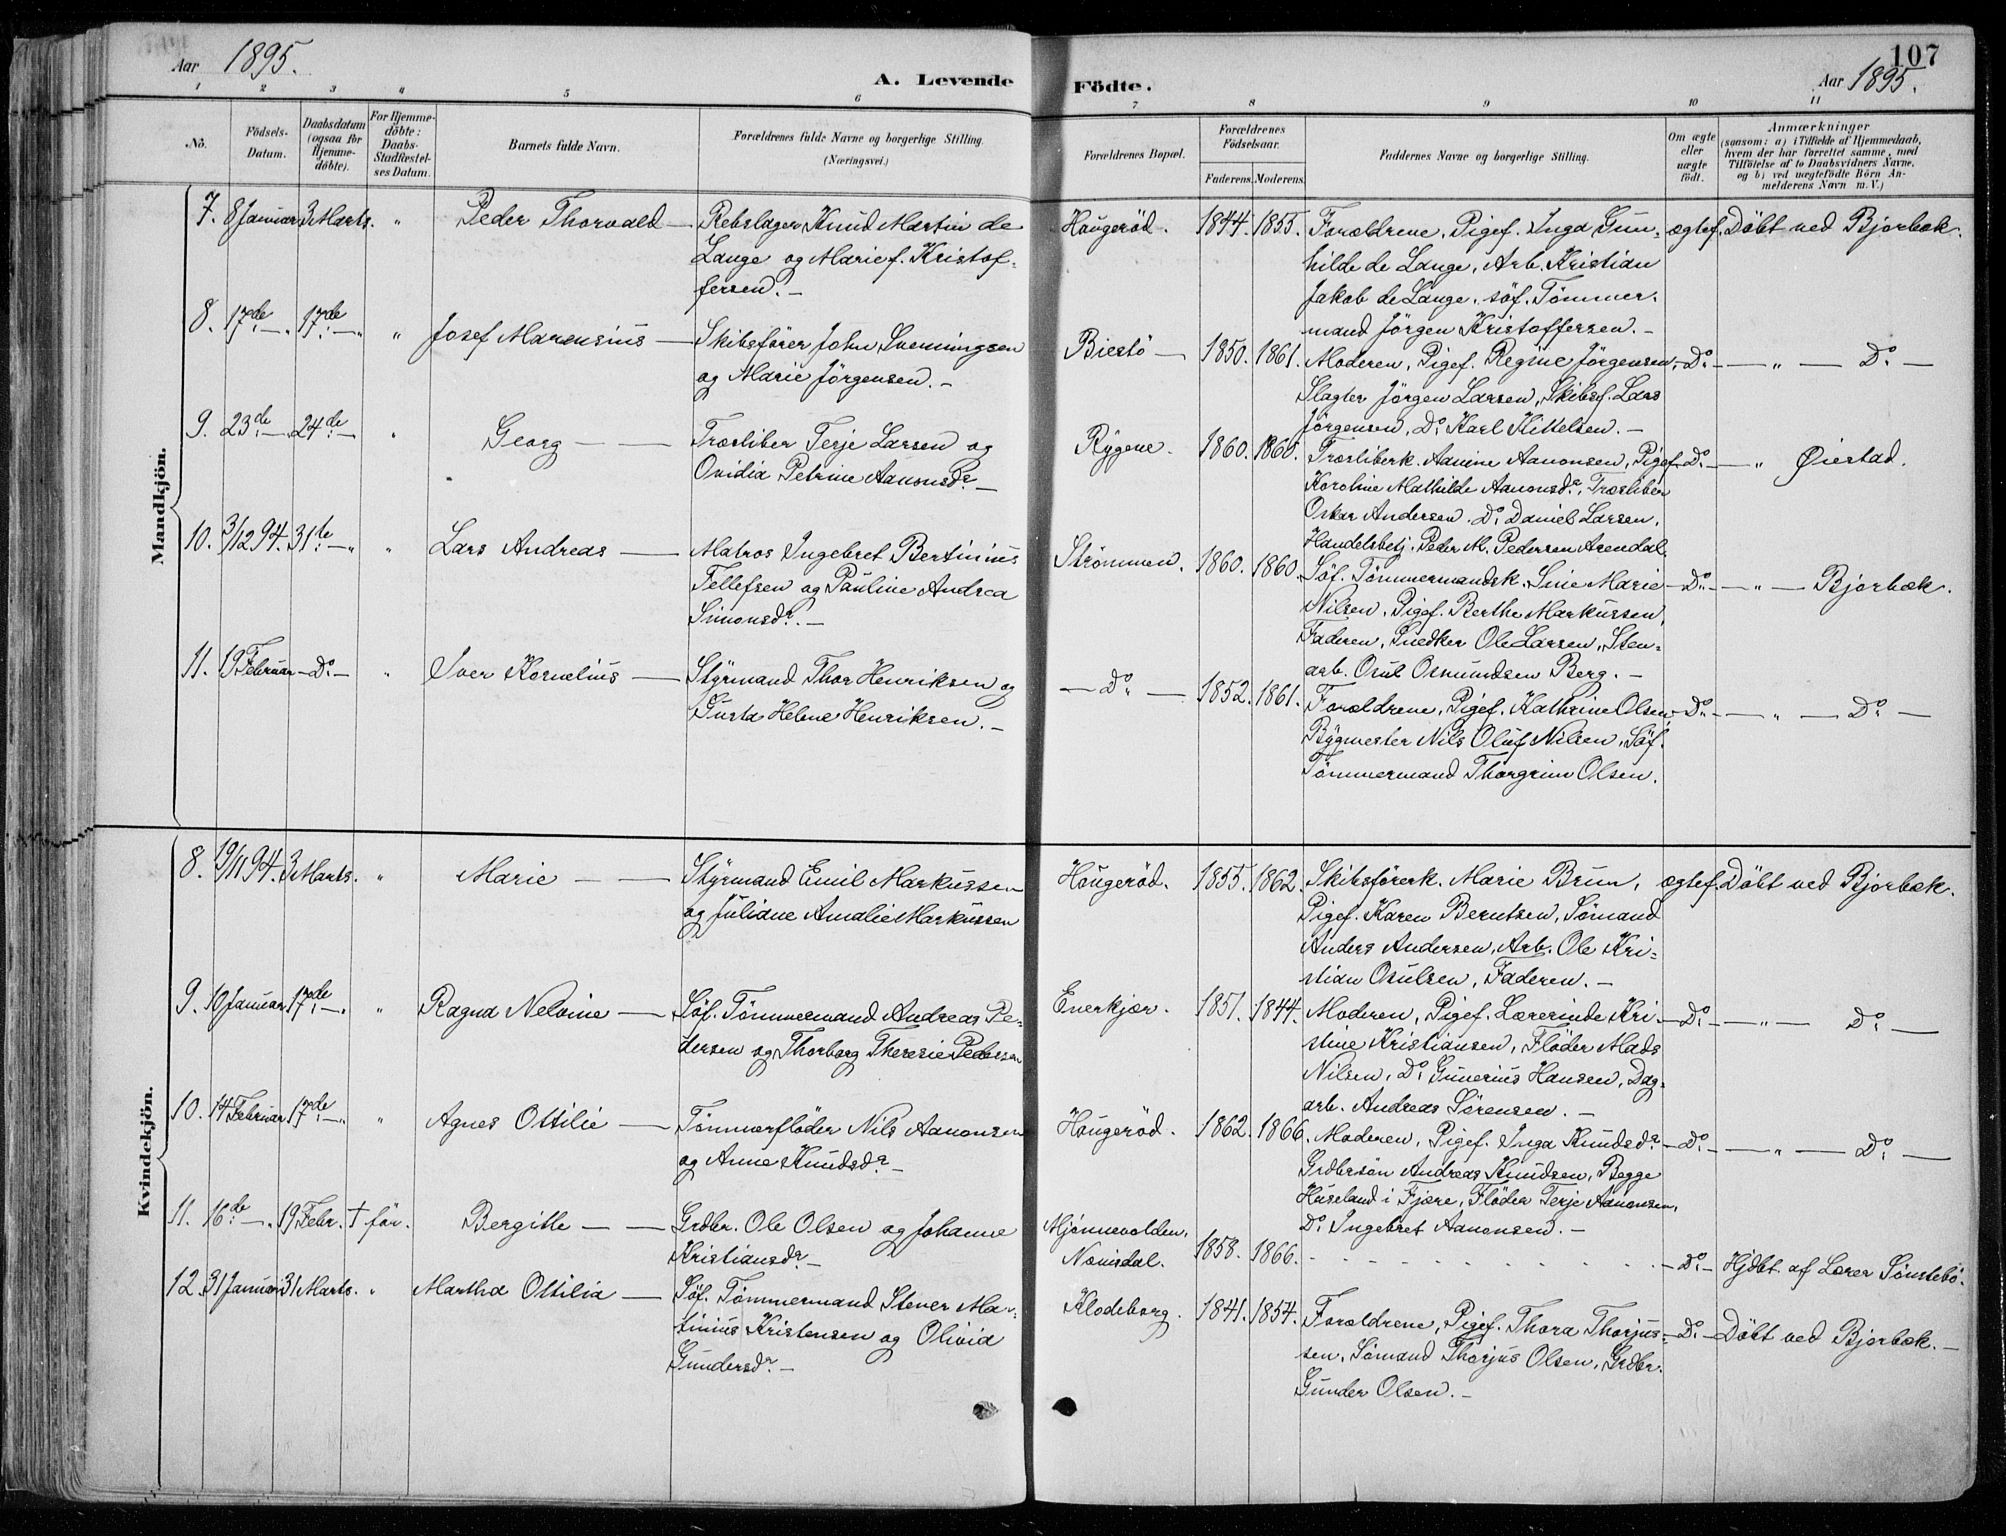 Aar 1895.
A. Levende
Födte.
107
Aar 1895.
1 2 3 4 5 6 7 8 9 10 11
No.
Födsels-
Datum.
Daabsdatum
(ogsaa for
Hjemme-
döbte).
For Hjemme-
döbte:
Daabs-
Stadfæstel-
ses Datum.
Barnets fulde Navn.
Forældrenes fulde Navne og borgerlige Stilling.
(Næringsvei.)
Forældrenes Bopæl.
Forældrenes
Födselsaar.
Faderens. Moderens.
Faddernes Navne og borgerlige Stilling.
Om ægte
eller
uægte
födt.
Anmærkninger
(saasom: a) i Tilfælde af Hjemmedaab,
hvem der har forrettet samme, med
Tilföielse af to Daabsvidners Navne,
og b) ved uægtefödte Börn An-
melderens Navn m. V.)
Mandkjön.
7. 8 Januar 3 Marts. " Peder Thorvald — Rebslager Knud Martin de Hougeröd. 1844. 1855. Forældrene, Pigef. Inga Gun- ægtef. Döbt ved Bjorbæk.
Lange og Marie f. Kristof- hilde de Lange, Arb. Kristian
fersen. — Jakob de Lange, söf. Tömmer-
mand Jörgen Kristoffersen. —
8. 17de — 17de — " Josef Marensius — Skibsförer John Svenningsen Biestö — 1850. 1861. Moderen, Pigef. Regine Jörgensen, — Do — " — Do —
og Marie Jörgensen. — Slagter Jörgen Larsen, Skibsf. Lars
Jörgensen, Do Karl Kittelsen. —
9. 23de — 24de — " Georg — — Træsliber Terje Larsen og Rygene. 1860. 1865. Træsliberk. Aanine Aanonsen, Pigef. — Do — " Öiestad.
Ovidia Petrine Aanonsdr. — Karoline Mathilde Aanonsdr., Træsliber
Oskar Andersen, Do Daniel Larsen,
Handelsbetj. Peder M. Pedersen Arendal.
10. 3/12 94. 31te — " Lars Andreas — Matros Ingebret Bertinius Strömmen. 1860. 1860. Söf. Tömmermandsk. Sine Marie — Do — " — Bjorbæk.
Tellefsen og Pauline Andrea Nilsen, Pigef. Berthe Markussen,
Simonsdr. — Faderen, Snedker Ole Larsen, Sten-
arb. Osul Osmundsen Berg. —
11. 19 Februar — Do — " Iver Kornelius — Styrmand Thor Henriksen og — Do — 1852. 1861. Forældrene, Pigef. Kathrine Olsen — Do — " — Do —
Gusta Helene Henriksen. — Bygmester Nils Oluf Nilsen, Söf.
Tömmermand Thorgrim Olsen.
Kvindekjön.
8. 19/11 94. 3 Marts. " Marie — — Styrmand Emil Markussen Hougeröd. 1855. 1862. Skibsförerk. Marie Brun, ægtef. Döbt ved Bjorbæk.
og Juliane Amalie Markussen Pigef. Karen Berntsen, Sömand
Anders Andersen, Arb. Ole Kri-
stian Osulsen, Faderen. —
9. 10 Januar 17de — " Ragna Nelvine — Söf. Tömmermand Andreas Pe- Enerkjær. 1851. 1844. Moderen, Pigef. Lærerinde Kri- — Do — " — Do —
dersen og Thorborg Theresie Pedersen stine Kristiansen, Flöder Mads
Nilsen, Do Gunerius Hansen, Dag-
arb. Andreas Sörensen. —
10. 14 Februar 17de — " Agnes Ottilie — Tömmerflöder Nils Aanonsen Hougeröd. 1862. 1866. Moderen, Pigef. Inga Knudsdr. — Do — " — Do —
og Anne Knudsdr. — Grdbrsön Andreas Knudsen, Begge
Huseland i Fjære, Flöder Terje Aanonsen,
Do Ingebret Aanonsen. —
11. 16de — 19 Febr. † för. Bergitte — — Grdbr. Ole Olsen og Johanne Mjönnevolden, 1858. 1866. — Do — Hjdbt. af Lærer Sönstebö.
Kristiansdr. — Næmsdal.
12. 31 Januar 31 Marts. " Martha Ottilia — Söf. Tömmermand Stener Ma- Klodeborg. 1841. 1854. Forældrene, Pigef. Thora Thorjus- — Do — Döbt ved Bjorbæk. —
tinius Kristensen og Olivia sen, Sömand Thorjus Olsen, Grdbr.
Gundersdr. — Gunder Olsen. —